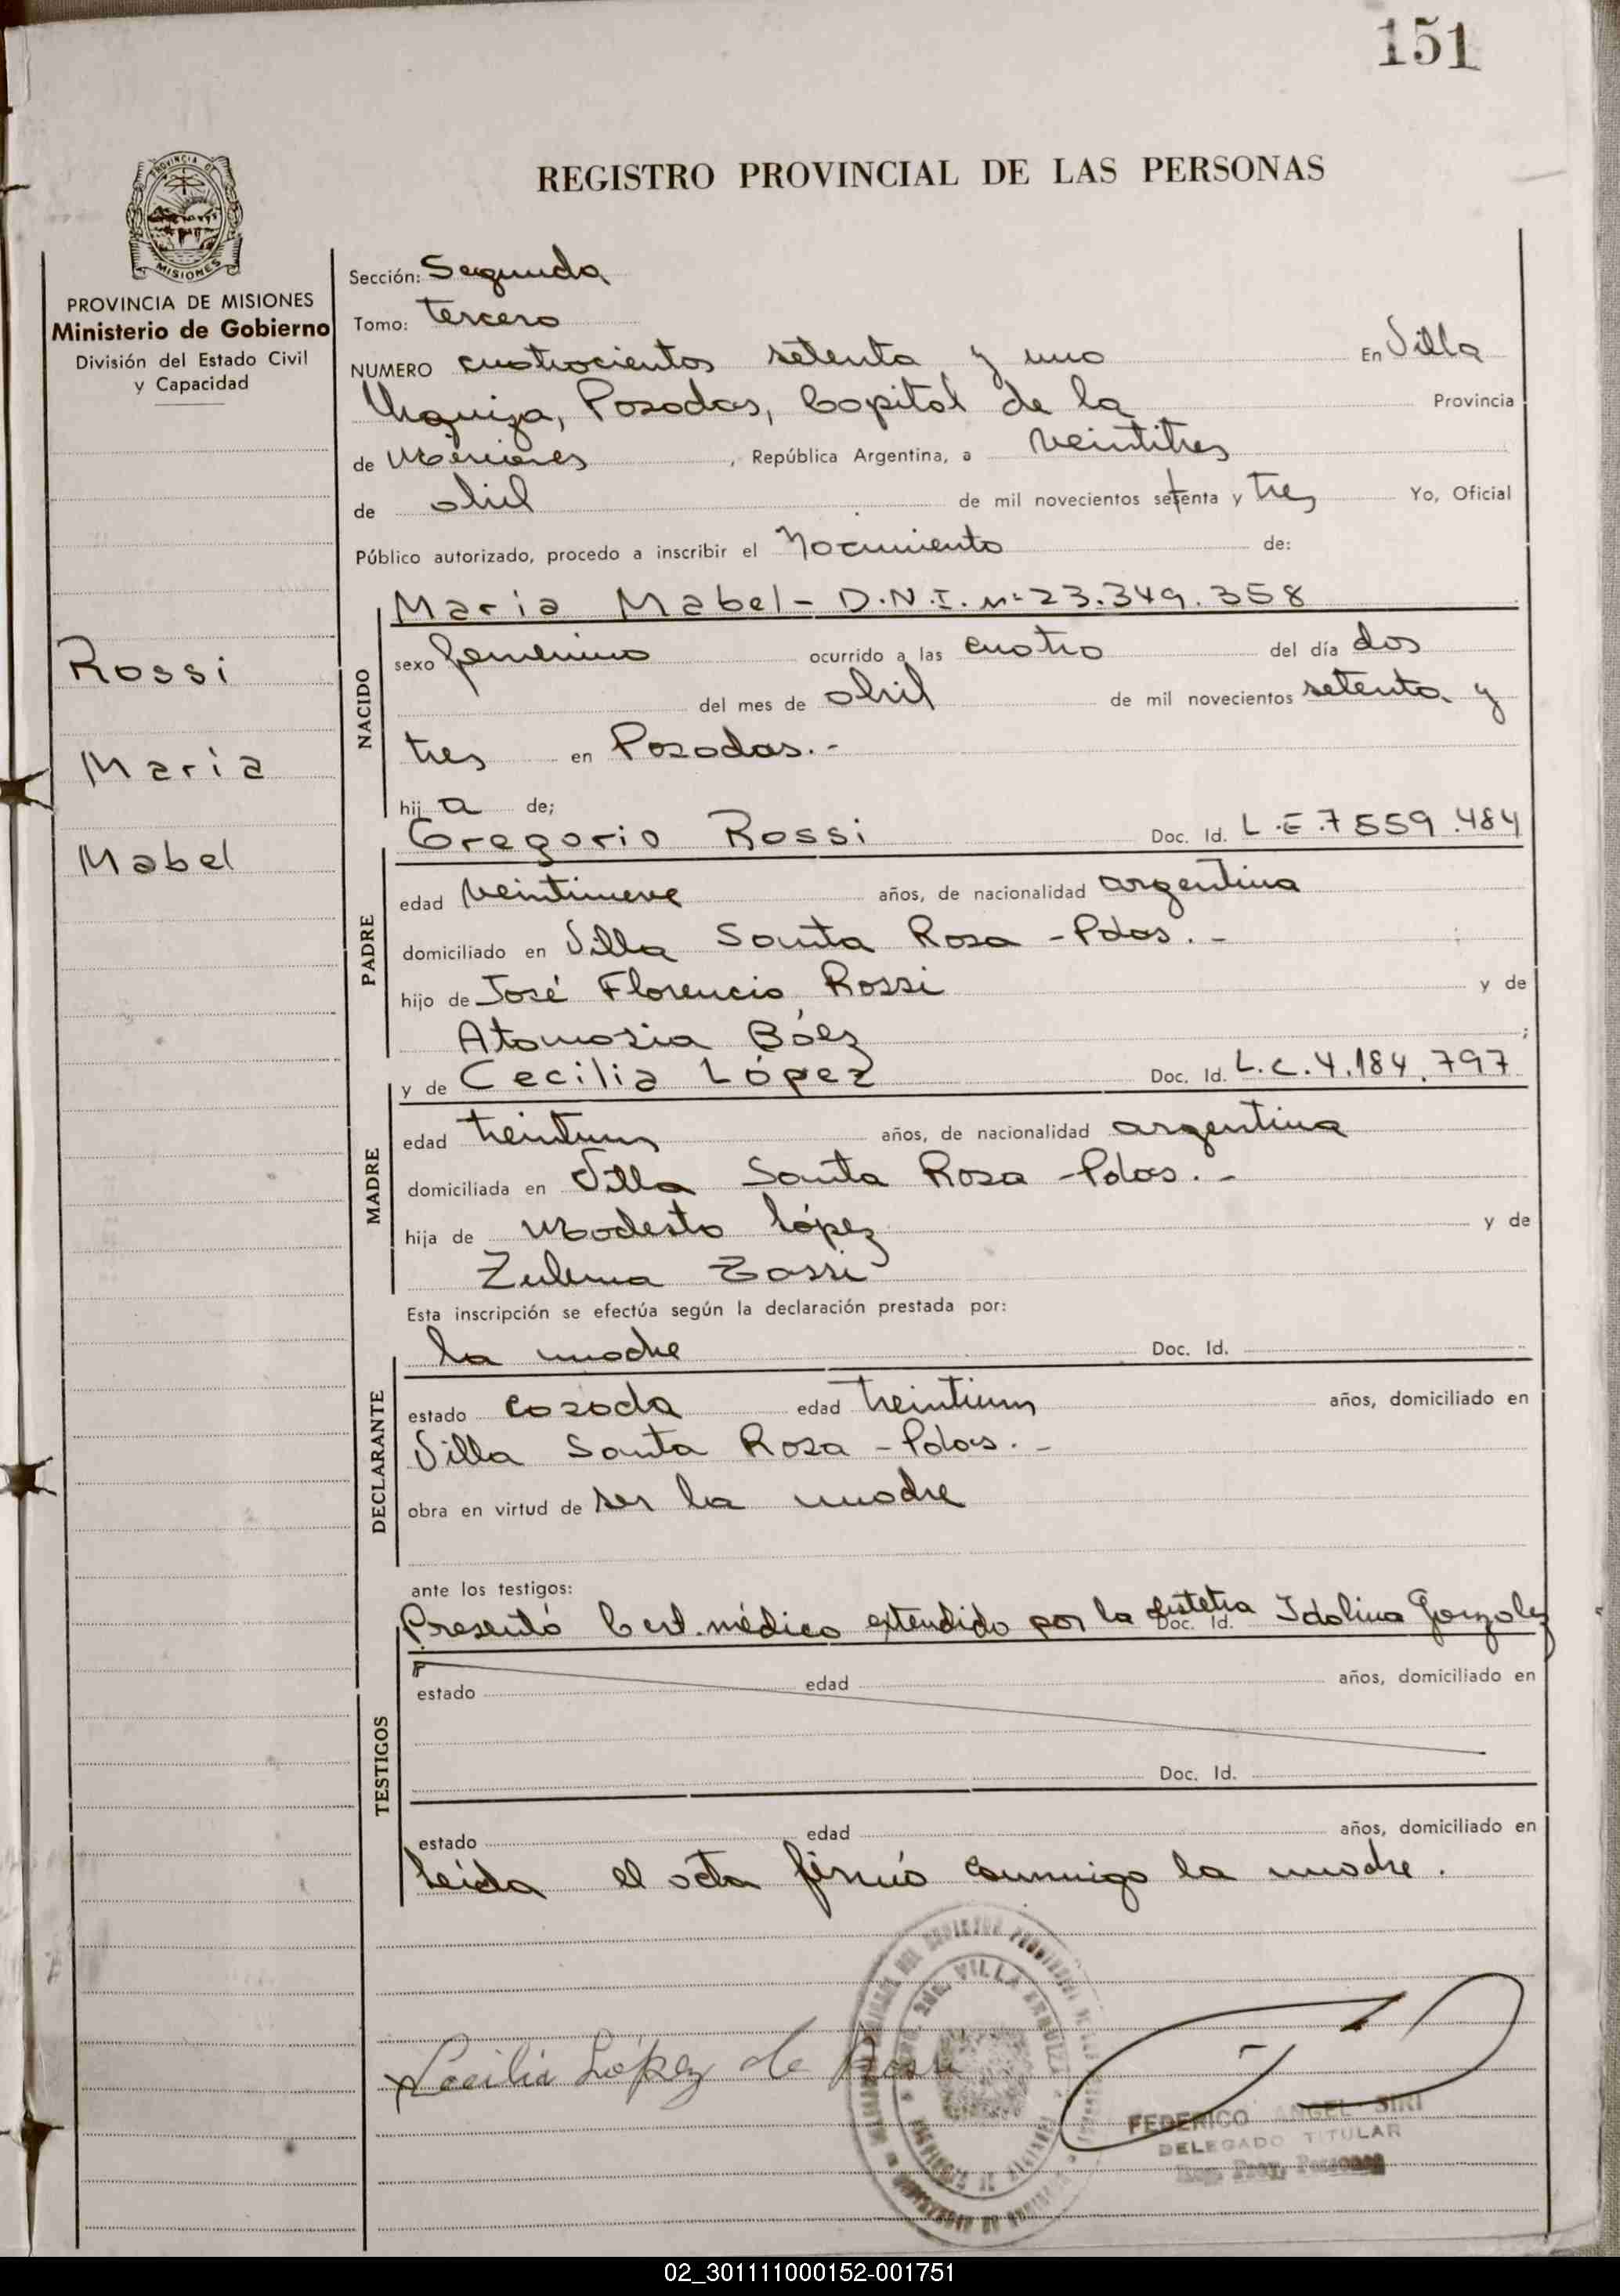 151
REGISTRO PROVINCIAL DE LAS PERSONAS
PROVINCIA DE MISIONES
PROVINCIA DE MISIONES
Ministerio de Gobierno
División del Estado Civil
y Capacidad
Rossi
Maria
Mabel
Sección: Segunda
Tomo: tercero
NUMERO cuatrocientos setenta y uno En Villa
Urquiza, Posadas, Capital de la Provincia
de Misiones, República Argentina, a veintitres
de abril de mil novecientos setenta y tres Yo, Oficial
Público autorizado, procedo a inscribir el Nacimiento de:
NACIDO
Maria Mabel - D.N.I. nº 23.349.358
sexo femenino ocurrido a las cuatro del día dos
del mes de abril de mil novecientos setenta y
tres en Posadas.-
hij a de;
PADRE
Gregorio Rossi Doc. Id. L.E. 7559.484
edad veintinueve años, de nacionalidad argentina
domiciliado en Villa Santa Rosa - Pdas.-
hijo de José Florencio Rossi y de
Báez;
MADRE
y de Cecilia López Doc. Id. L.C. 4.184.797
edad treintiun años, de nacionalidad argentina
domiciliada en Villa Santa Rosa - Pdas.-
hija de Modesto López y de
Zulema
Esta inscripción se efectúa según la declaración prestada por:
DECLARANTE
la madre Doc. Id.
estado casada edad treintiun años, domiciliado en
Villa Santa Rosa - Pdas.-
obra en virtud de ser la madre
ante los testigos:
TESTIGOS
Presentó Cert. médico extendido por la Doc. Id. Idolina Gonzalez
estado edad años, domiciliado en
Doc. Id.
estado edad años, domiciliado en
leida el acta firmó conmigo la madre.
Cecilia López de Rossi
VILLA URQUIZA
FEDERICO ANGEL SIRI
DELEGADO TITULAR
Reg. Prov. Personas
02_301111000152-001751